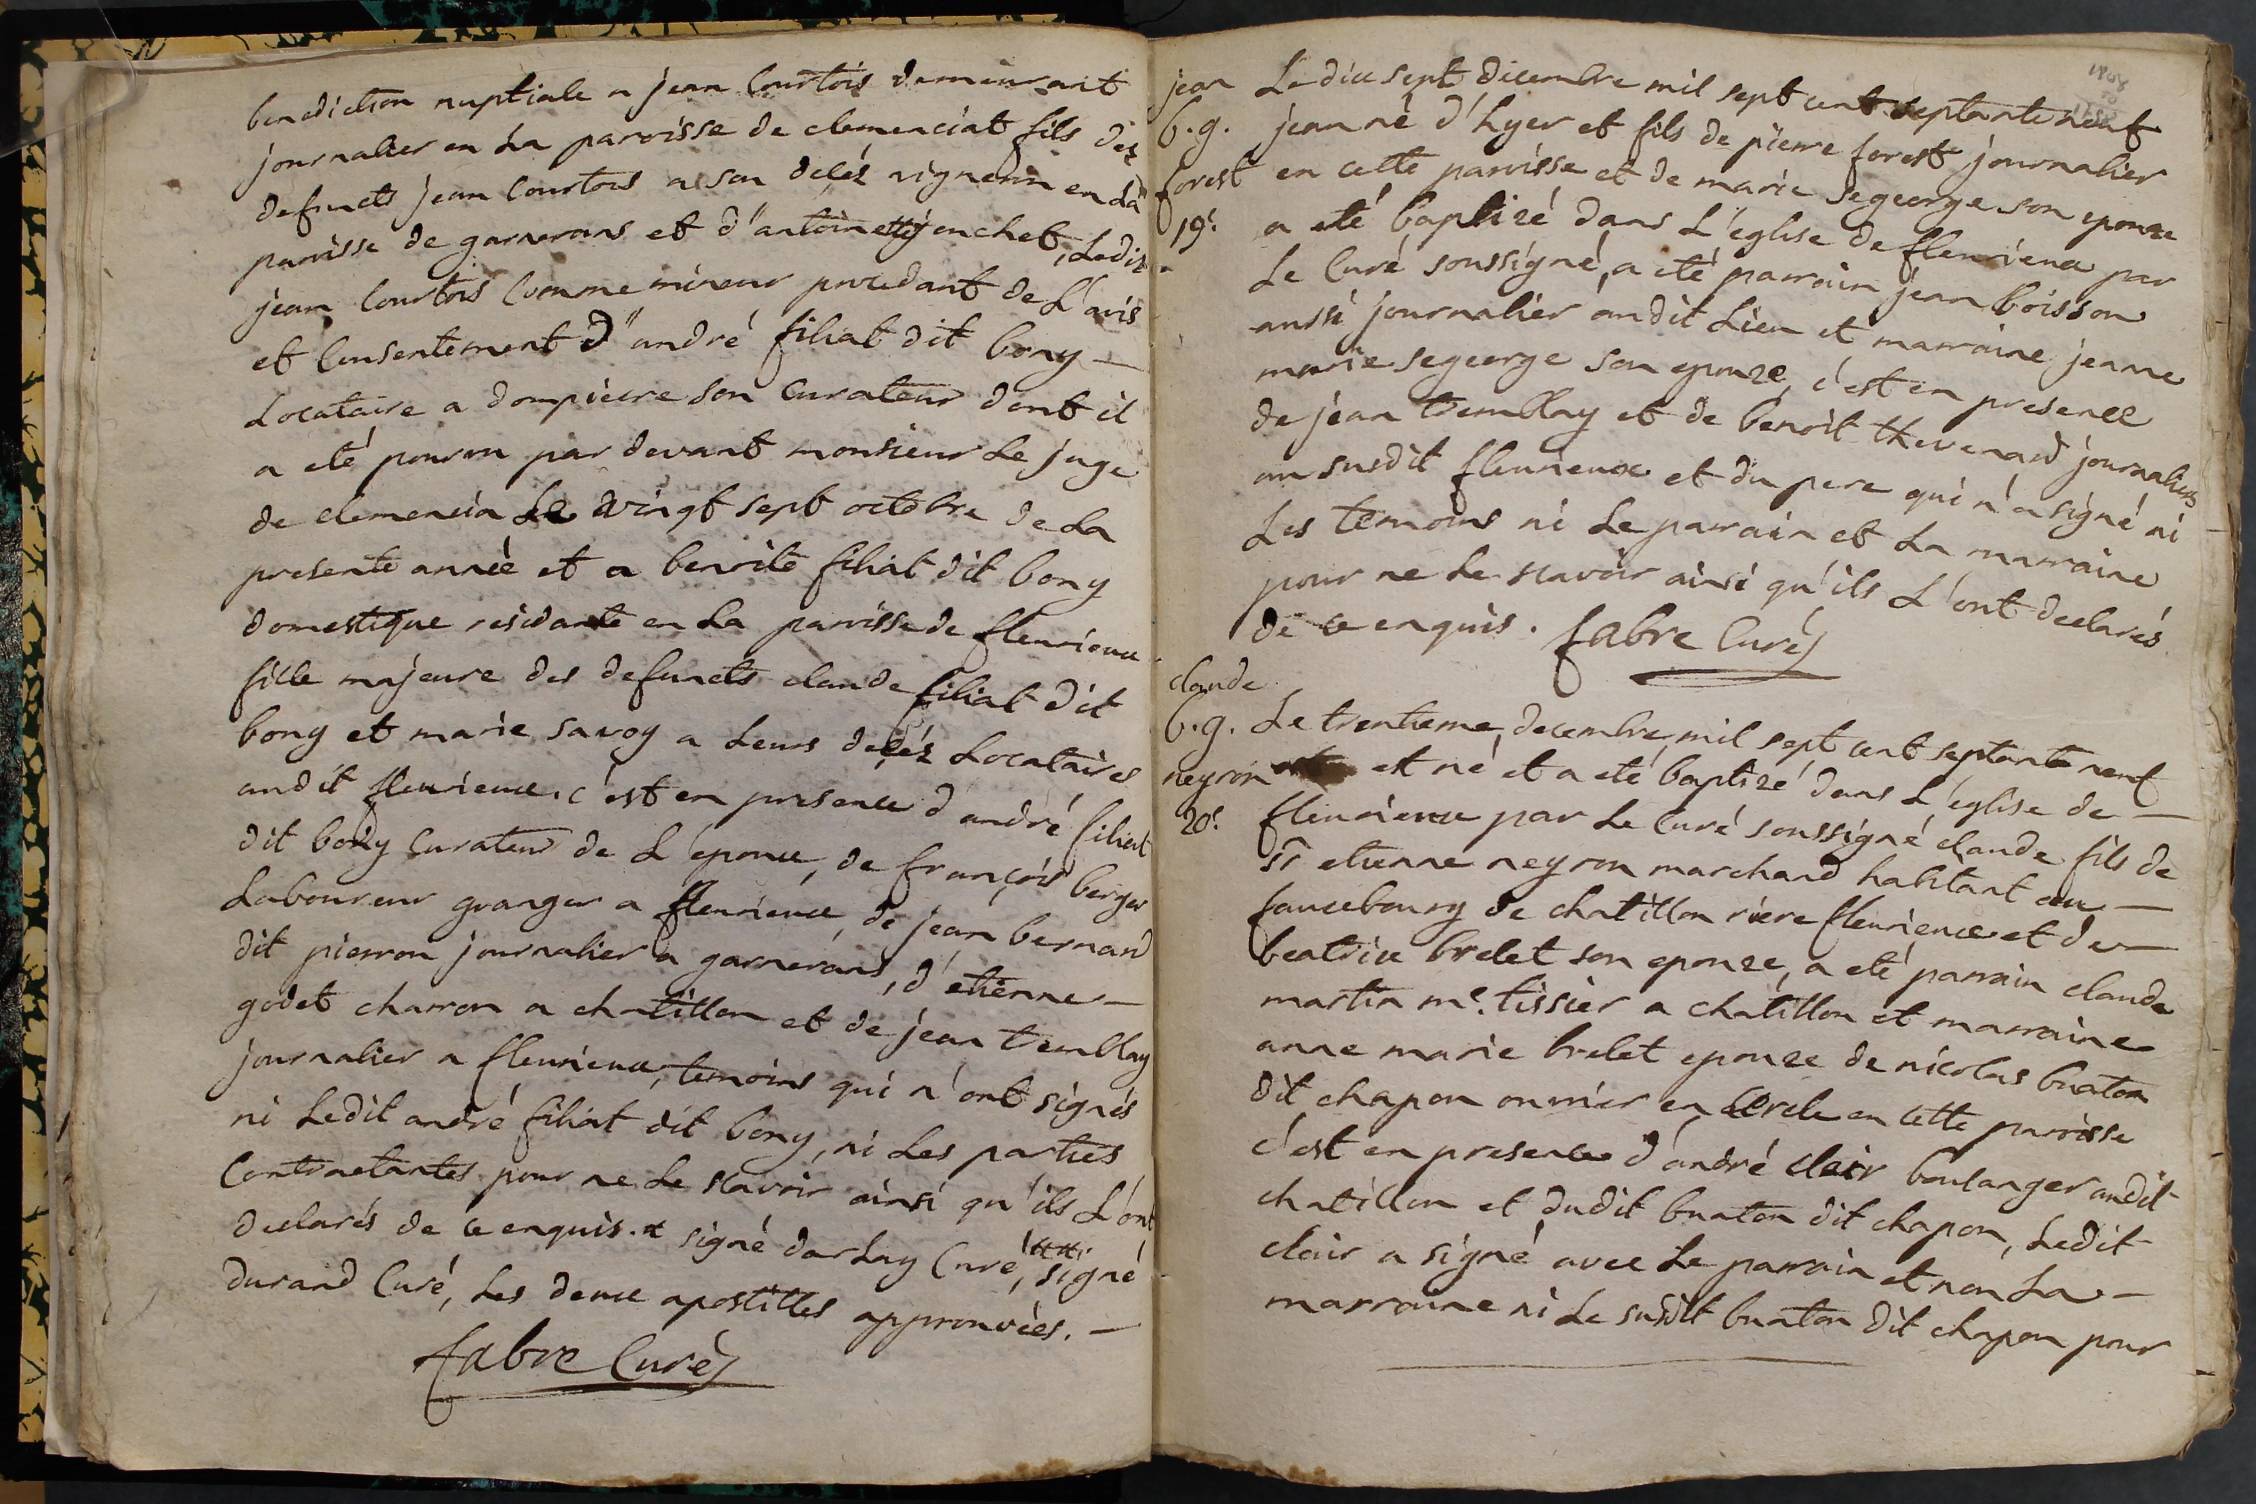 benediction nuptiale a jean Courtois demeurant
journalier en La paroisse de clemenciat fils des
defuncts jean Courtois a son décés vigneron en La
paroisse de garnerans et d" antoinette jonchet, Ledit
jean Courtois Comme mineur procedant de L'avis
et Consentement d" andré filiat dit bony —
Locataire a dompierre son Curateur dont il
a eté pourvu par devant monsieur Le juge
de clemencia Le vingt sept octobre de La
presente année et a benoite filiat dit bony
domestique residante en La paroisse de fleurieux
fille majeure des defuncts claude filiat dit
bony et marie savoy a Leurs décés Locataires
audit fleurieux. c'est en presence d'andré filiat
dit bony Curateur de L'epoux, de françois berger
Laboureur granger a fleurieux, de jean bernard
dit pierron journalier a garnerans, d'etienne —
godet charron a chatillon et de jean tremblay
journalier a fleurieux, temoins qui n'ont signés
ni Ledit andré filiat dit bony, ni Les parties
Contractantes pour ne Le scavoir ainsi qu'ils L'ont
declarés de ce enquis. signé darlay Curé, signé
durand Curé, Les deux apostilles approuvées. —
fabre Curé
jean
b. g.
forest
19e.
Le dix sept decembre mil sept cent septante neuf
jean né d'hyer et fils de pierre forest journalier
en cette paroisse et de marie segeorge son epouze
a eté baptizé dans L'eglise de fleurieux par
Le Curé soussigné, a eté parrain jean boisson
aussi journalier audit Lieu et marraine jeanne
marie segeorge son epouze, c'est en presence
de jean tremblay et de benoit thevenard journaliers
au susdit fleurieux et du pere qui n'a signé ni
Les temoins ni Le parrain et La marraine
pour ne Le scavoir ainsi qu'ils L'ont declarés
de ce enquis. fabre Curé
claude
b. g.
neyron
20e.
Le trentieme decembre mil sept cent septante neuf
est né et a eté baptizé dans L'eglise de —
fleurieux par Le Curé soussigné claude fils de
sr etienne neyron marchand habitant au —
fauxbourg de chatillon riere fleurieux et de —
beatrix brelet son epouze, a eté parrain claude
martin me. tissier a chatillon et marraine
anne marie brelet epouze de nicolas buaton
dit chapon ouvrier en cercle en cette paroisse
c'est en presence d'andré clair boulanger audit
chatillon et dudit buaton dit chapon, Ledit
clair a signé avec Le parrain et non La —
marraine ni Le susdit buaton dit chapon pour